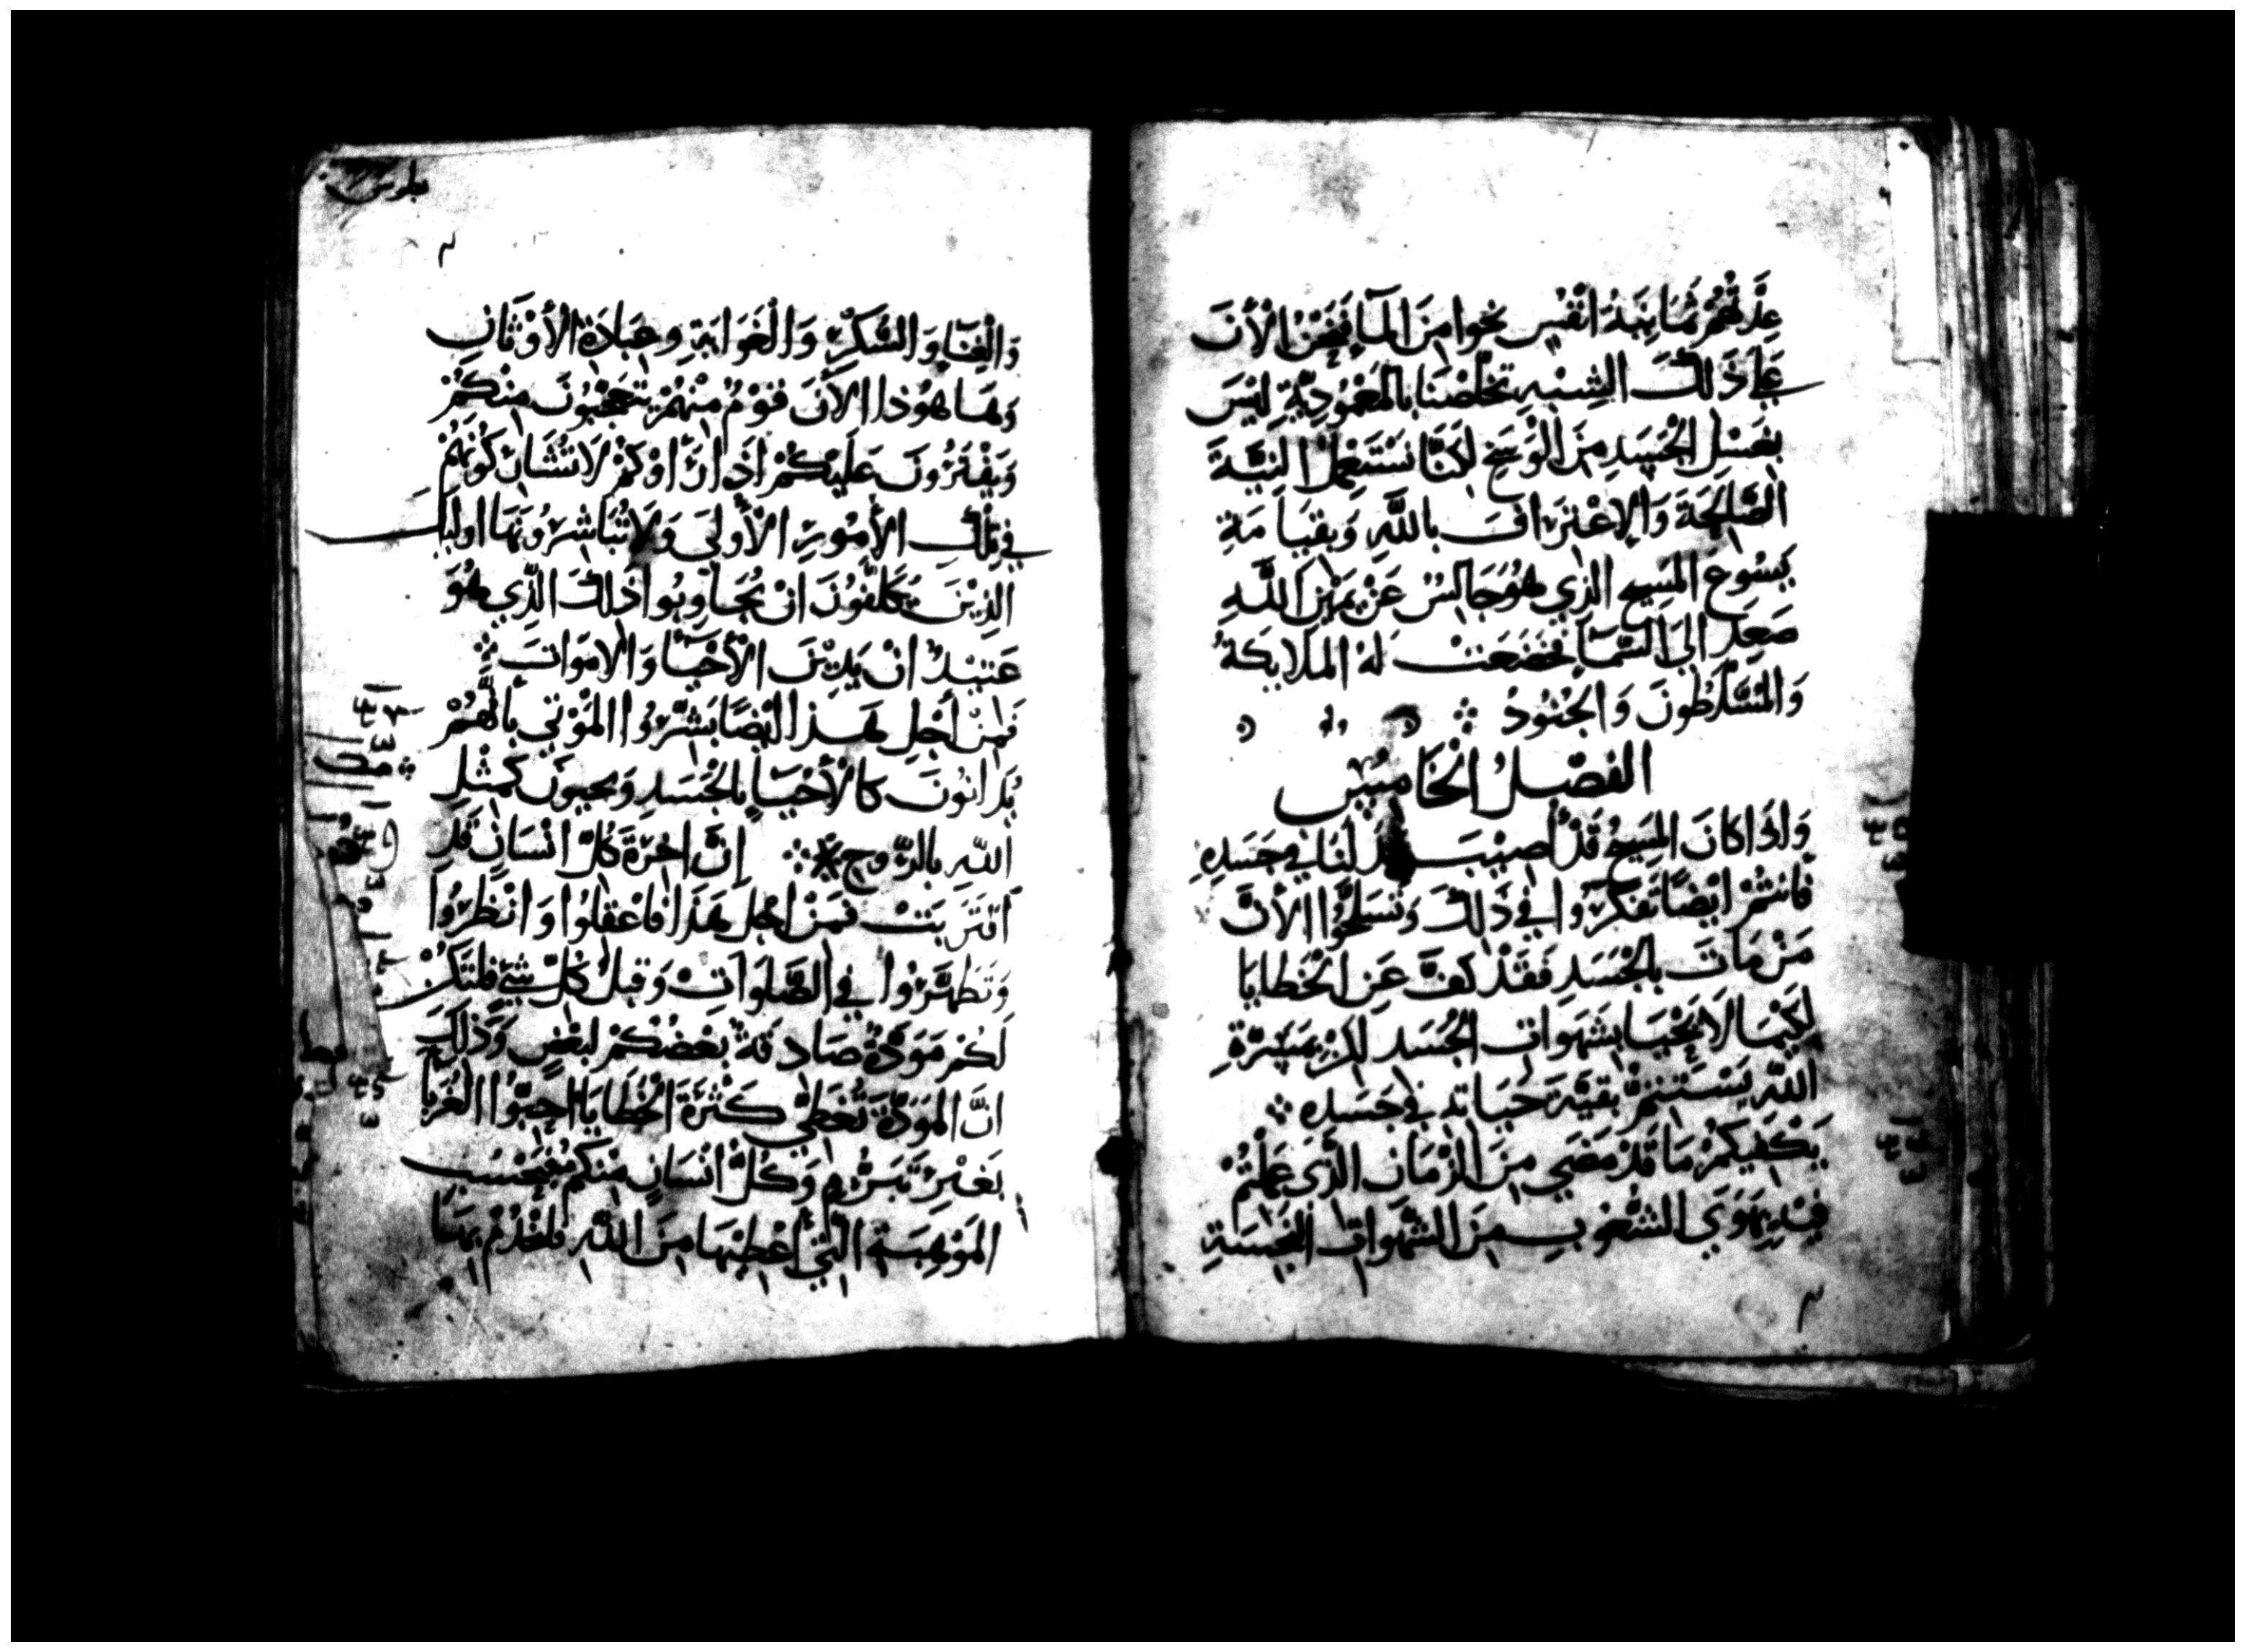 عِدَّتُهُمْ ثَمَانِيَةُ انْفُسٍ نجوا مِنَ الْمآءِ فَنَحْنُ الْأَنَ
عَلَى ذَلِكَ الشِبْهِ تخلّصْنَا بِالمَعْمُودِيَّةِ لَيْسَ
بِغَسْلِ الْجَسَدِ مِنَ الْوَسَخِ لَكِنَّا نَسْتَعْمِلُ النِيَّةَ
الصَّالِحَةَ وَالإِعْتِرَافَ بِاللَّهِ وَبِقِيَامَةِ
يَسُوعَ المَسِيحِ الَّذِي هُوَ جَالِسٌ عَنْ يَمِيْنِ اللَّهِ
صَعِدَ الَى السَّمَآءِ فَخَضَعَتْ لَهُ الْمَلَايِكَةُ
وَالْمُسَلَّطُونَ وَالْجُنُودُ
الفصْلُ الْخَامِسُ
وَاذَا كَانَ المَسِيحُ قَدْ اصِيْبَ بَدَلَنَا فِي جَسَدِهِ
فَانتُمْ ايْضًا تَفَكَّرُوا فِي ذَلِكَ وَتَسَلَّحُوا الأَنَّ
مَنْ مَاتَ بِالْجَسَدِ فَقَدْ كَفَّ عَنِ الْخَطَايَا
لِكَيْمَا لَا يَحْيَا بِشَهَوَاتِ الْجَسَدِ لَكِنْ بِمَسَرَّةِ
اللَّهِ يَسْتَتِمُّ بَقِيَّةَ حَيَاتِهِ فِي جَسَدِهِ
يَكْفِيكُمْ مَا قَدْ مَضَى مِنَ الزَّمَانِ الَّذِي عَمِلْتُمْ
فِيْهِ بِهَوَى الشُّعُوبِ مِنَ الشَّهَوَاتِ النَّجِسَةِ
بولس
وَالْغِنَاءِ وَالسُّكْرِ وَالْغَوَايَةِ وعِبَادَةِ الأَوْثَانِ
وَهَا هُوَذَا الأَنَ قَوْمٌ مِنْهُمْ يَتَعَجَّبُونَ مِنْكُمْ
وَيَفْتَرُونَ عَلَيْكُمْ اذَا رَأَوْكُمْ لَا تُشَارِكُونَهُمْ
فِي تِلْكَ الأُمُورِ الْأُولَى وَلَا تُبَاشِرُونَهَا اولَئكَ
الَّذِيْنَ يُكَلَّفُونَ انْ يُجَاوِبُوا ذَلِكَ الَّذِي هُوَ
عَتِيْدٌ انْ يَدِيْنَ الأَحْيَاءَ وَالامْوَاتَ
فَمِنْ أَجْلِ هَذَا ايْضًا بَشَّرُوا الْمَوْتَى بِانَّهُمْ
يُدَانُونَ كَالْأَحْيَاءِ بِالْجَسَدِ وَيَحيونَ كَمِثْلِ
اللَّهِ بِالرُّوحِ إِنَّ اخِرَةَ كُلِّ انْسَانٍ قَدِ
اقتَرَبَتْ فَمِنْ اجْلِ هَذَا فَاعْقِلُوا وَانْظُرُوا
وَتَطَهَّرُوا فِي الصَّلَوَاتِ وَقَبْلَ كُلِّ شَيْءٍ فَلْتَكُنْ
لَكُمْ مَوَدَّةٌ صَادِقَةٌ بَعْضُكُمْ لِبَعْضٍ وَذَلِكَ
انَّ الْمَوَدَّةَ تُغَطِّي كَثْرَةَ الْخَطَايَا احِبُّوا الغُرَبَآءَ
بِغَيْرِ تَبَرُّمٍ وَكُلُّ انْسَانٍ مِنْكُمْ فَبِحَسْبِ
المَوْهِبَةِ الَّتِي أُعْطِيَهَا مِنَ اللَّهِ فَلْيَخْدُمْ بِهَا